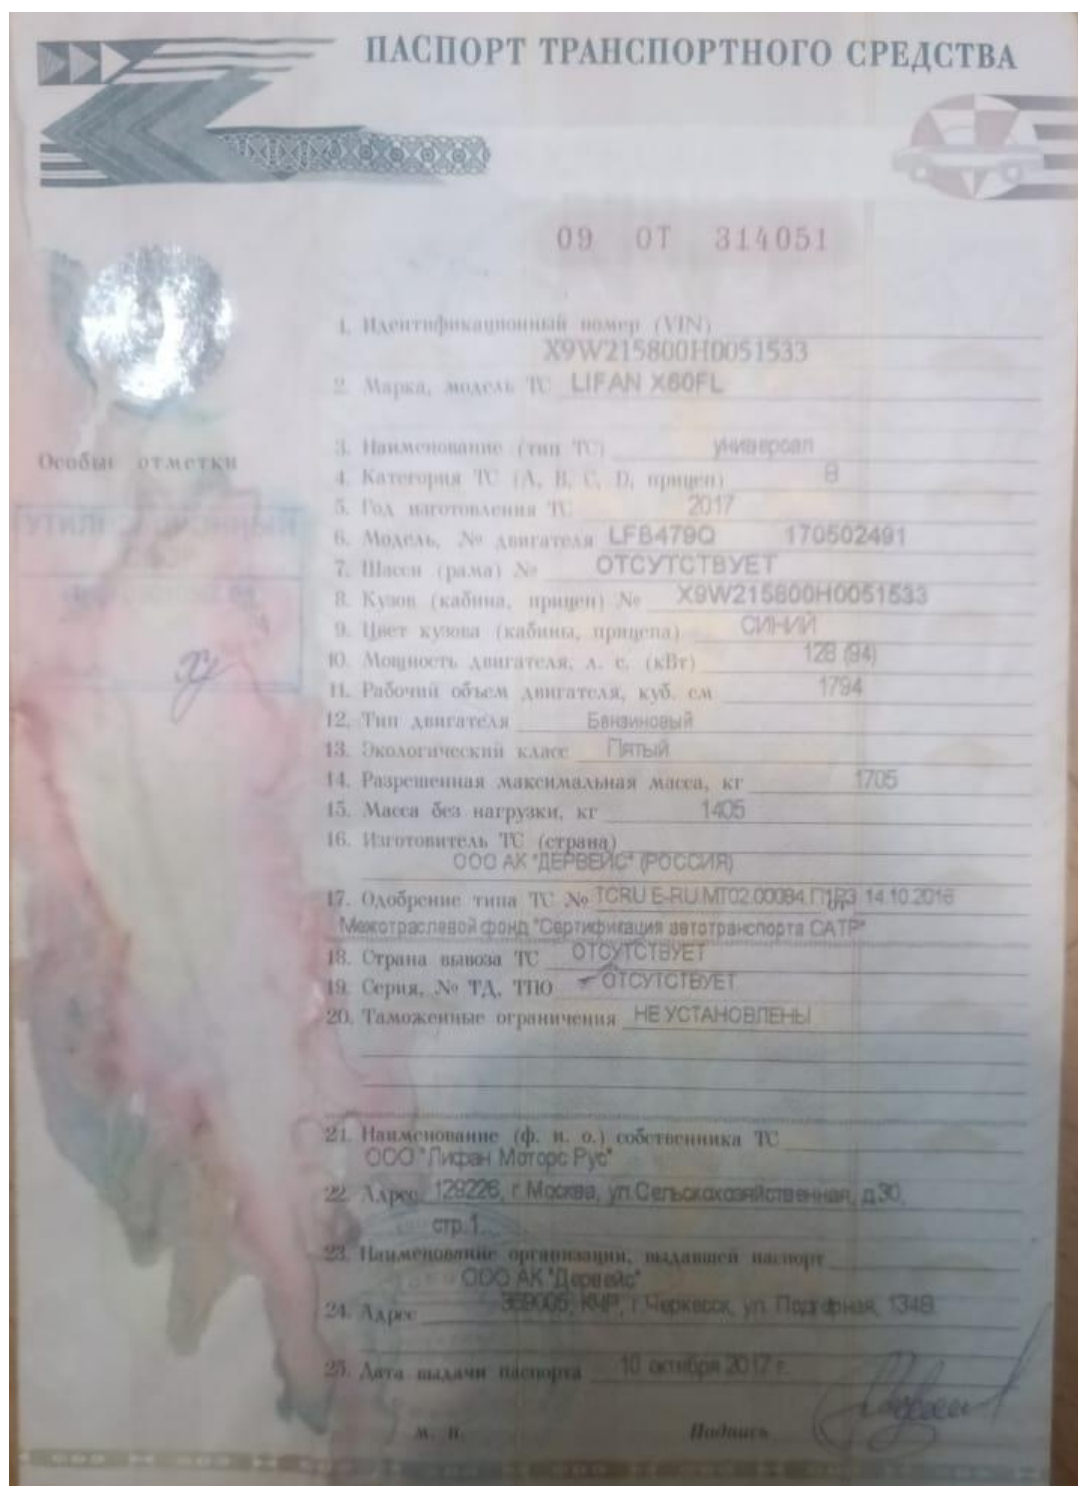 ПАСПОРТ ТРАНСПОРТНОГО СРЕДСТВА
09 ОТ 314051
1. Идентификационный номер (VIN)
X9W215800H0051533
2. Марка, модель ТС LIFAN X60FL
3. Наименование (тип ТС) универсал
Особые отметки
4. Категория ТС (А, В, С, D, прицеп) В
5. Год изготовления ТС 2017
6. Модель, № двигателя LFB479Q 170502491
7. Шасси (рама) № ОТСУТСТВУЕТ
8. Кузов (кабина, прицеп) № X9W215800H0051533
9. Цвет кузова (кабины, прицепа) СИНИЙ
10. Мощность двигателя, л. с. (кВт) 128 (94)
11. Рабочий объем двигателя, куб. см 1794
12. Тип двигателя Бензиновый
13. Экологический класс Пятый
14. Разрешенная максимальная масса, кг 1705
15. Масса без нагрузки, кг 1405
16. Изготовитель ТС (страна)
ООО АК "ДЕРВЕЙС" (РОССИЯ)
17. Одобрение типа ТС № ТСRU E-RU.MT02.00084.П1Р3 от 14.10.2016
Межотраслевой фонд "Сертификация автотранспорта САТР"
18. Страна вывоза ТС ОТСУТСТВУЕТ
19. Серия, № ТД, ТПО ОТСУТСТВУЕТ
20. Таможенные ограничения НЕ УСТАНОВЛЕНЫ
21. Наименование (ф. и. о.) собственника ТС
ООО "Лифан Моторс Рус"
22. Адрес 129226, г Москва, ул.Сельскохозяйственная, д30,
стр.1.
23. Наименование организации, выдавшей паспорт
ООО АК "Дервейс"
24. Адрес 369005, КЧР, г.Черкесск, ул. Подгорная, 134В
25. Дата выдачи паспорта 10 октября 2017 г.
М. П. Подпись